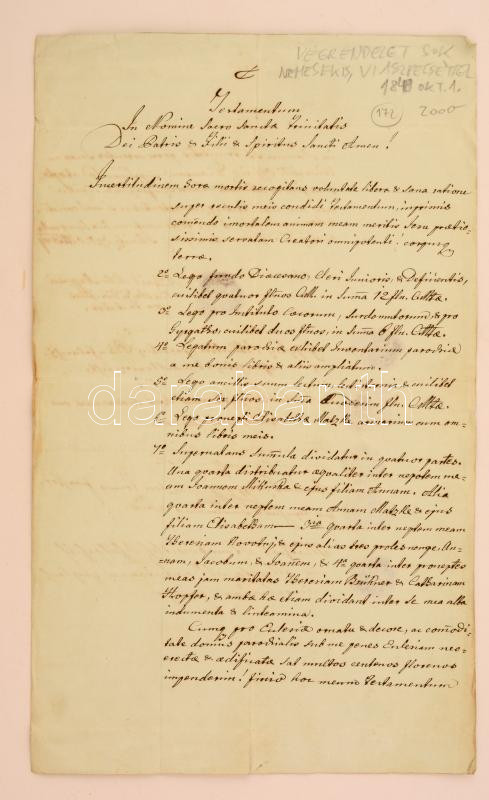 VÉGRENDELET SOK
NEMESEKIS, VIASZPECSÉTTEL
1840 OKT. 1.
172 2000
Testamentum
In Nomine Sacro Sanctæ Trinitatis
Dei Patris & Filii & Spiritus Sancti Amen!
Incertitudinem horæ mortis recogitans voluntate libera & sana ratione
super reculis meis condidi testamentum, inprimis
comendo imortalem animam meam meritis Jesu pretio-
sissimis servatam Creatori omnipotenti! corpusq
terræ.
2º Lego fundo Diœcesano, Cleri Junioris, & Deficientis,
cuilibet quatuor flnos CMt. in Suma 12 fln. CMtæ.
3º Lego pro Instituto Cœcorum, Surdomutorum & pro
cuilibet duos flnos, in Suma 6 fln. CMtæ.
4º Legatum parochiæ exhibet Inventarium parochiæ
a me bonis libris & aliis ampliatum.
5º Lego ancillis suum lectum, & cuilibet
etiam sex flnos, in Sma duodecim fln. CMtæ.
6º Lego pronepti Elisabethæ Matzke armarium cum om-
nibus libris meis.
7º Supernatans Sumula dividatur in quatuor partes.
Una quarta distribuatur æqualiter inter nepotem me-
um Joannem Mikuska & ejus filiam Annam. Alia
quarta inter neptem meam Annam Matzke & ejus
filiam Elisabetham — 3tia quarta inter neptem meam
Theresiam Novotny & ejus alias tres proles nempe, An-
nam, Jacobum, & Joanem, & 4ta quarta inter proneptes
meas jam maritatas Theresiam Brükner & Catharinam
Hopfer, & ambæ hæ etiam dividant inter se mea alba
indumenta & linteamina.
Cumq pro Ecclesiæ ornatu & decore, ac comodi-
tate domus parochialis sub me penes Ecclesiam neo-
erectæ & ædificatæ sat multos centenos florenos
impenderim! finio hoc meum testamentum
darabanth